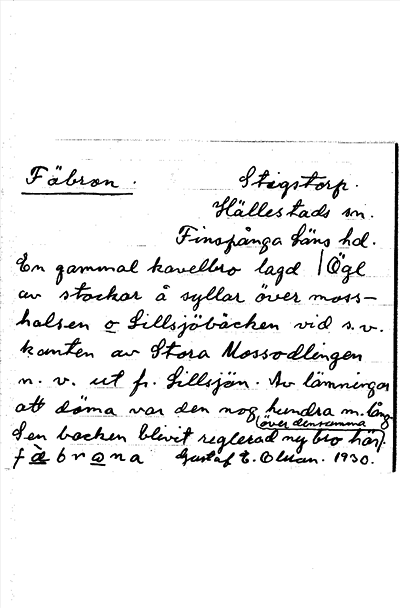 Fäbron. Stegstorp.
Hällestads sn.
Finspånga läns hd.
En gammal kavelbro lagd | Ögl
av stockar å syllar över moss-
halsen o Lillsjöbäcken vid s.v.
kanten av Stora Mossodlingen
n. v. ut fr. Lillsjön. Av lämningar
att döma var den nog hundra m. lång
över densamma
Sen backen blivit reglerad ny bro här.
fäbrona Gustaf E. Olsson. 1930.